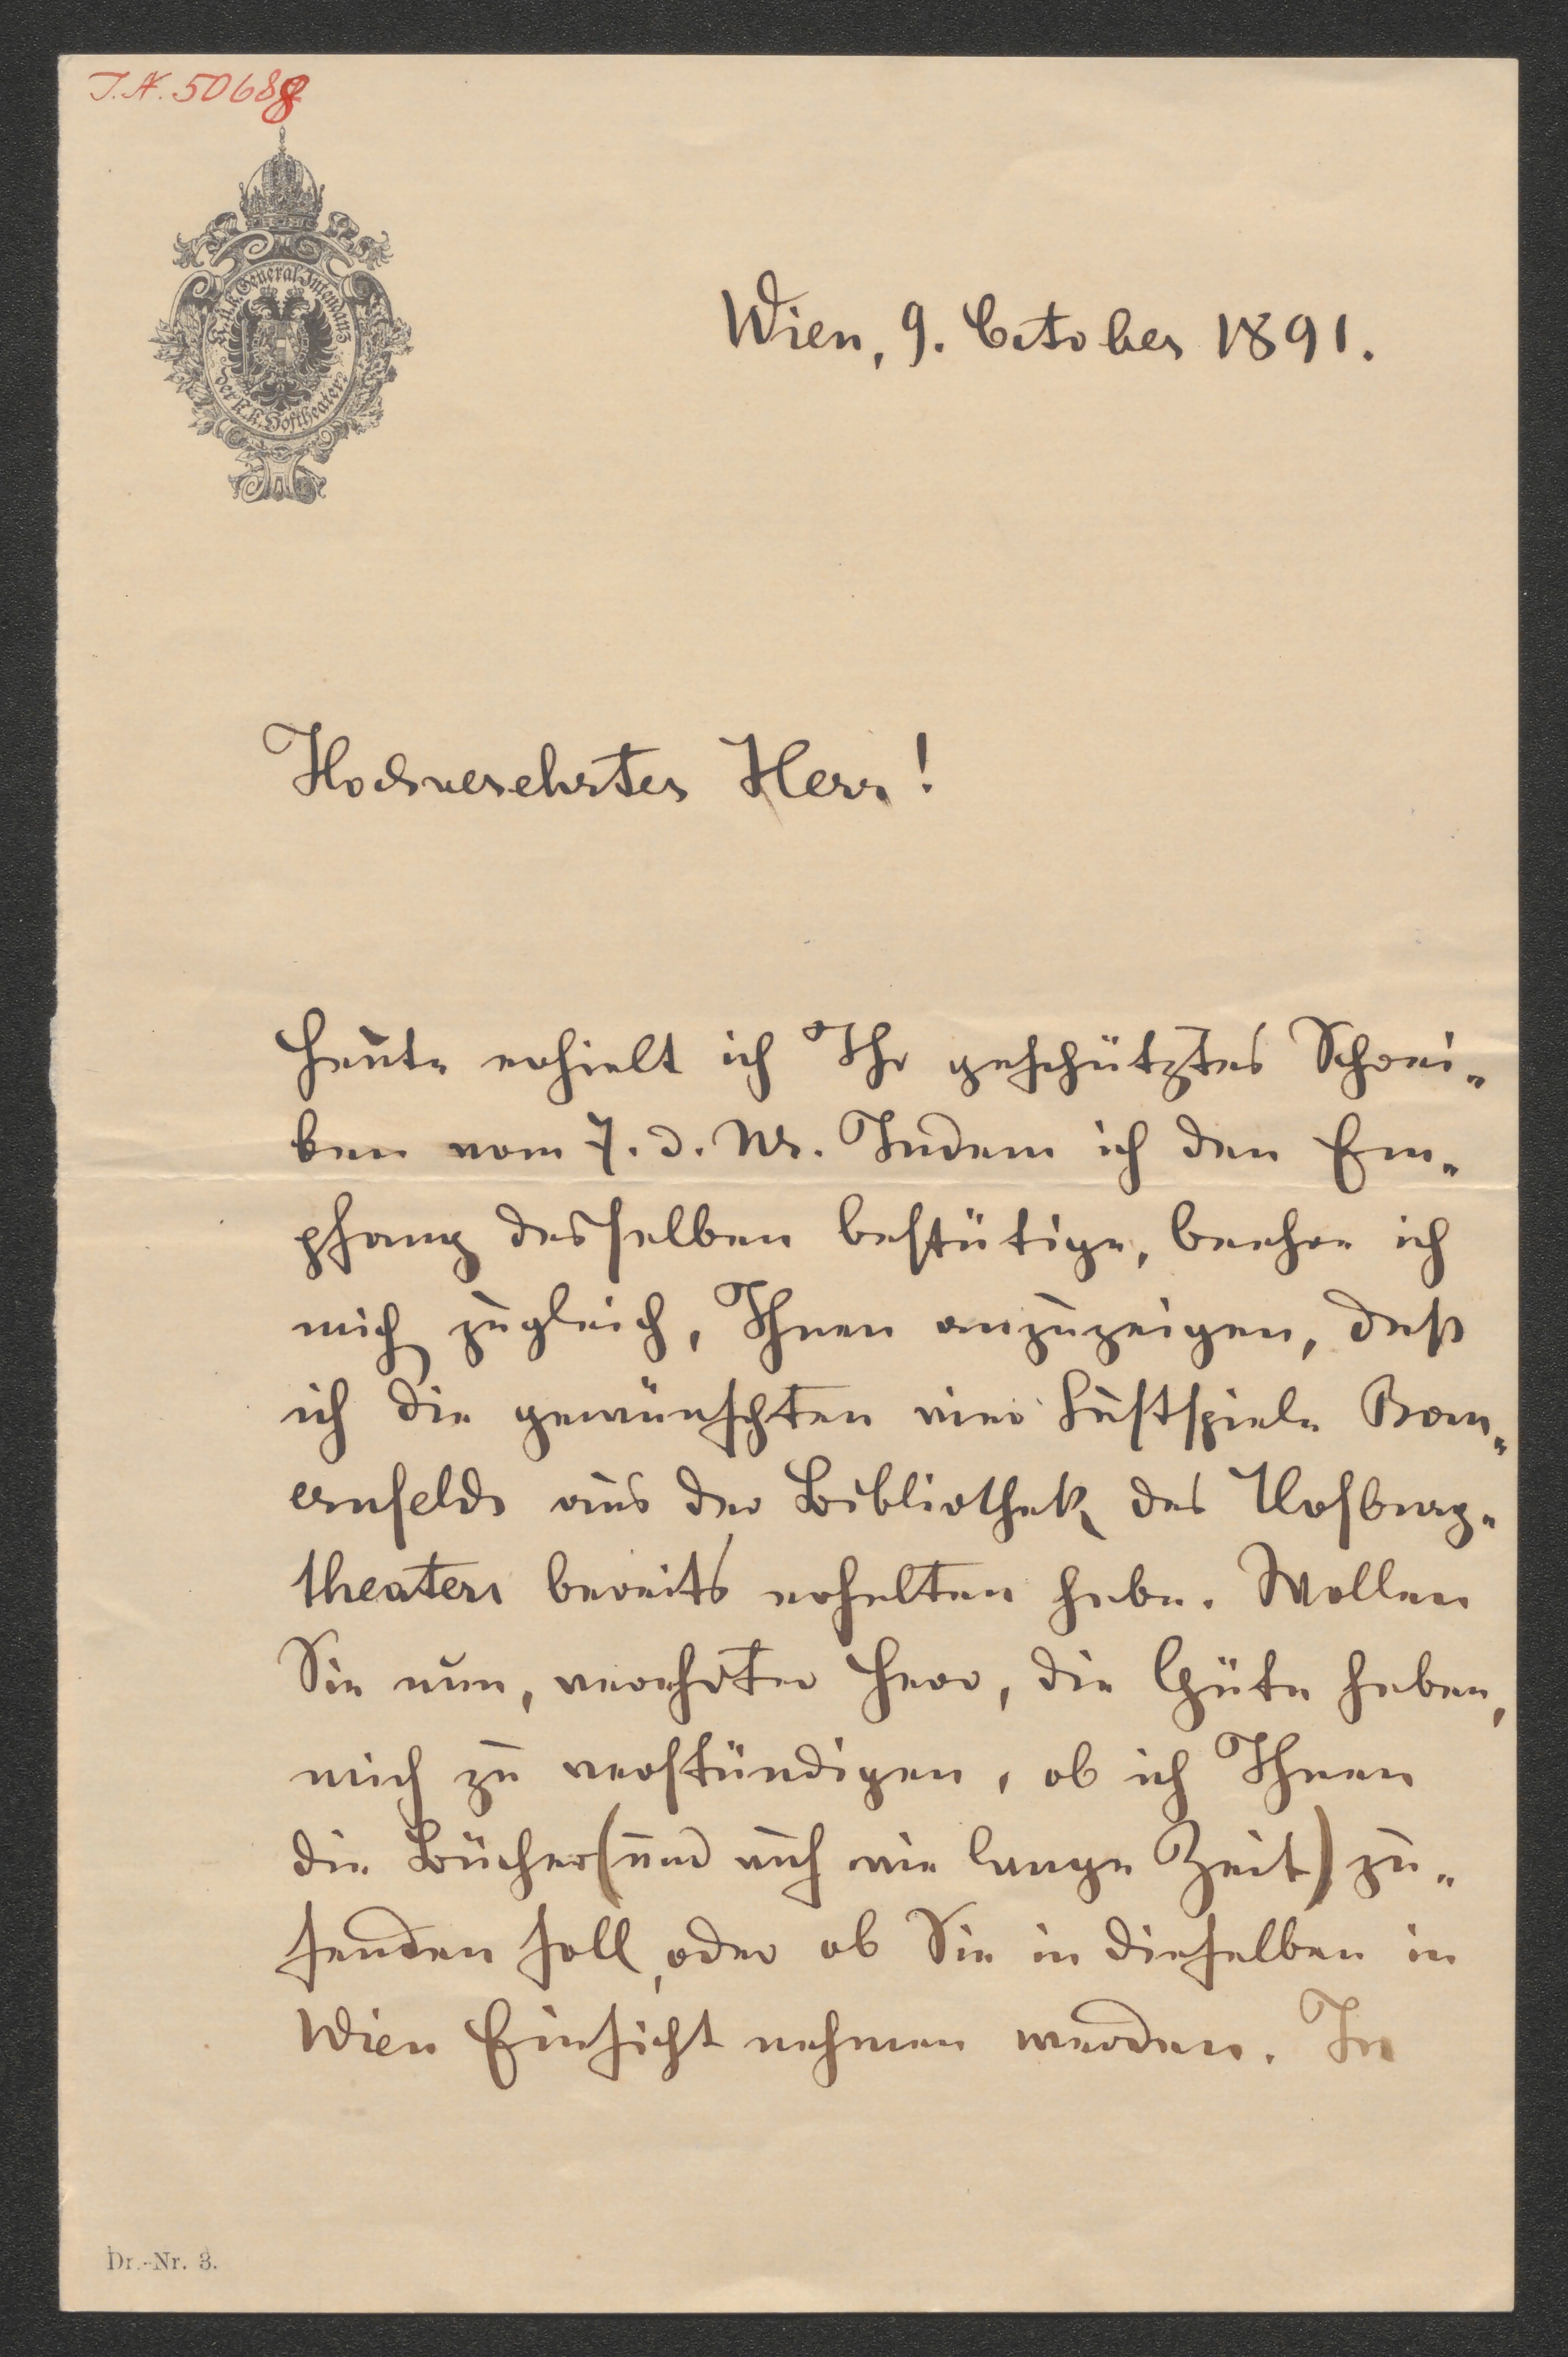 I.N. 50688
K. u. k. General-Intendanz
der k. k. Hoftheater
Wien, 9. October 1891.
Hochverehrter Herr!
Heute erhielt ich Ihr geschätztes Schrei-
ben vom 7. d. M. Indem ich den Em-
pfang desselben bestätige, beehre ich
mich zugleich, Ihnen anzuzeigen, daß
ich die gewünschten vier Lustspiele Bau-
ernfelds aus der Bibliothek des Hofburg-
theaters bereits erhalten habe. Wollen
Sie nun, verehrter Herr, die Güte haben,
mich zu verständigen, ob ich Ihnen
die Bücher (und auf wie lange Zeit) zu-
senden soll, oder ob Sie in dieselben in
Wien Einsicht nehmen werden. In
Dr.-Nr. 3.